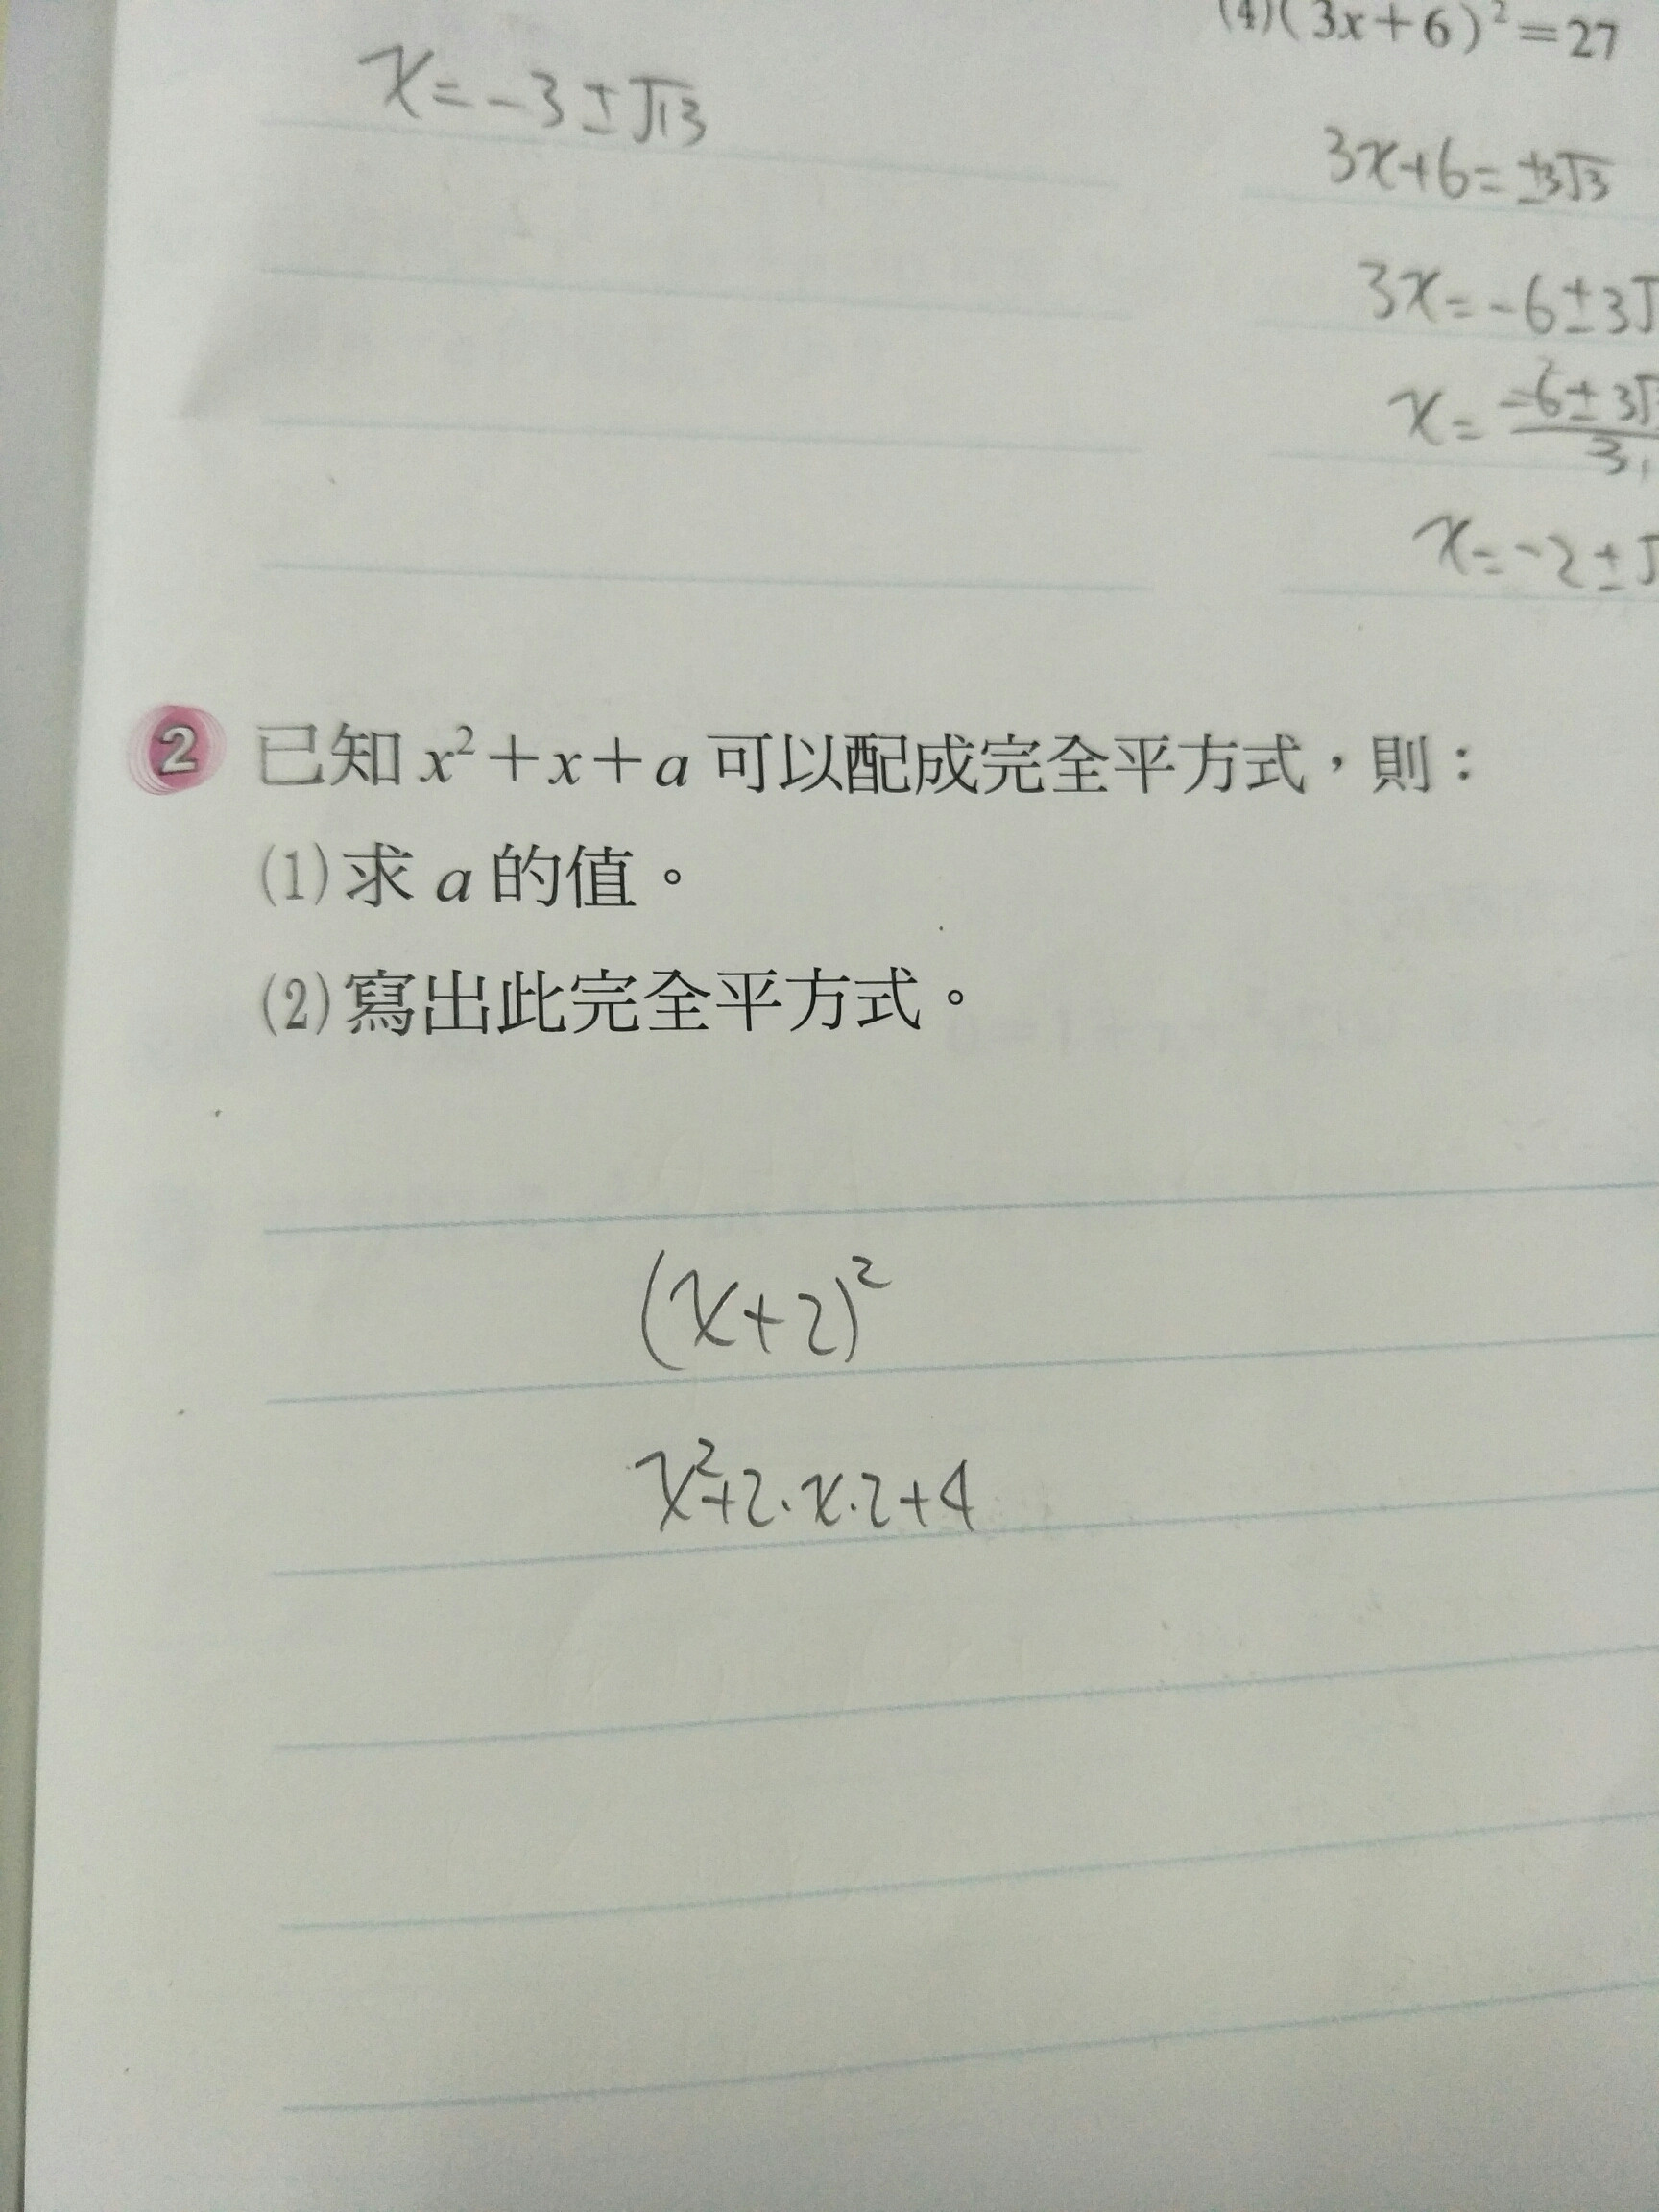 (4)(3x+6)²=27
x=-3±√13
3x+6=±3√3
3x=-6±3√
x=-6±3√/3
x=-2±√
2 已知 x²+x+a 可以配成完全平方式，則：
(1)求 a 的值。
(2)寫出此完全平方式。
(x+2)²
x²+2·x·2+4